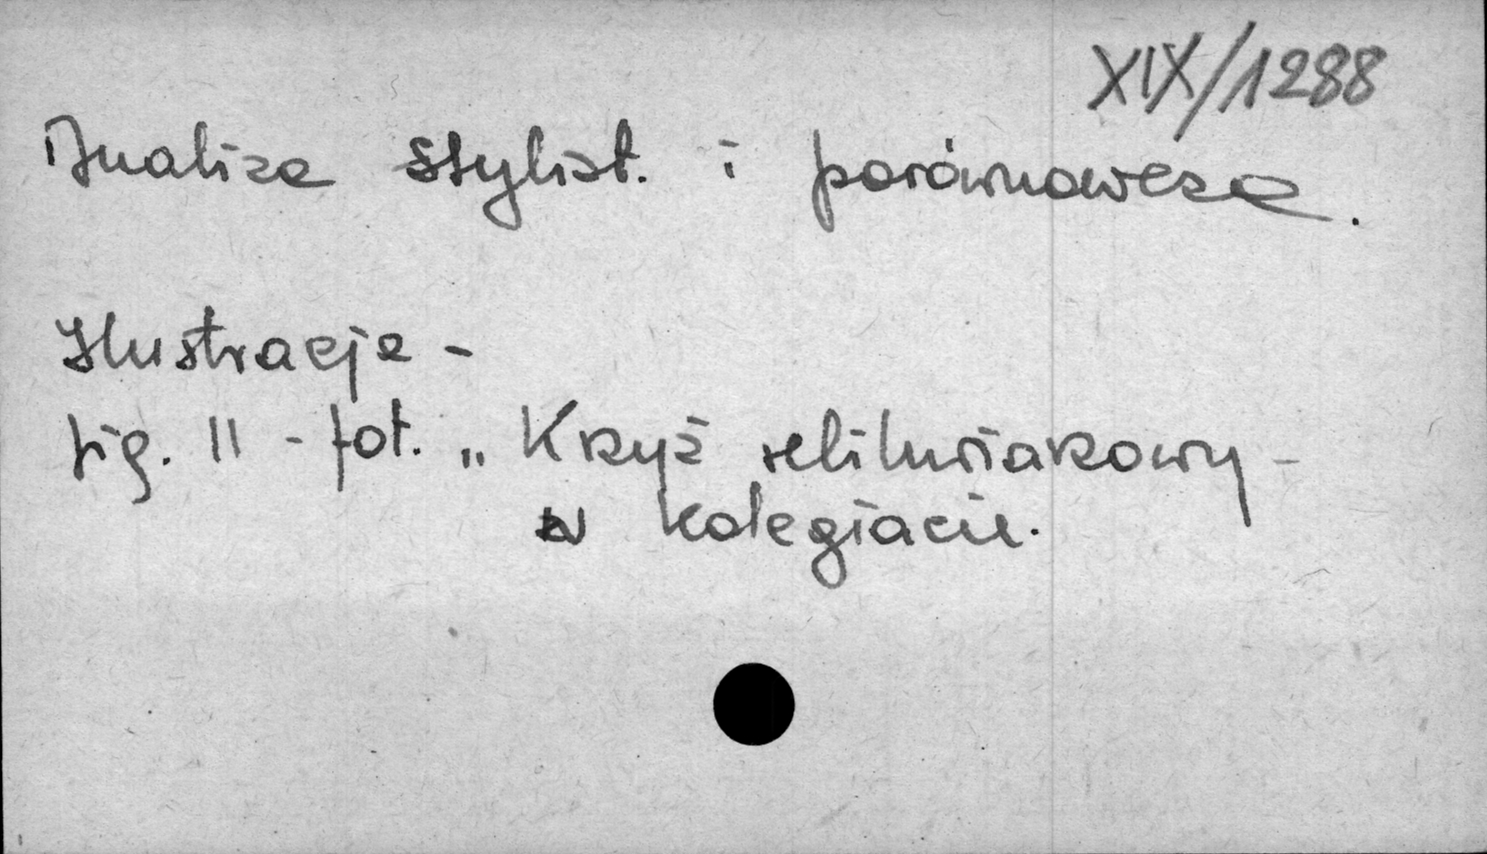 XIX/1288
Analiza stylist. i porównawcza.
Ilustracje -
fig. II - fot. „Krzyż relikwiarzowy -
w kolegiacie.